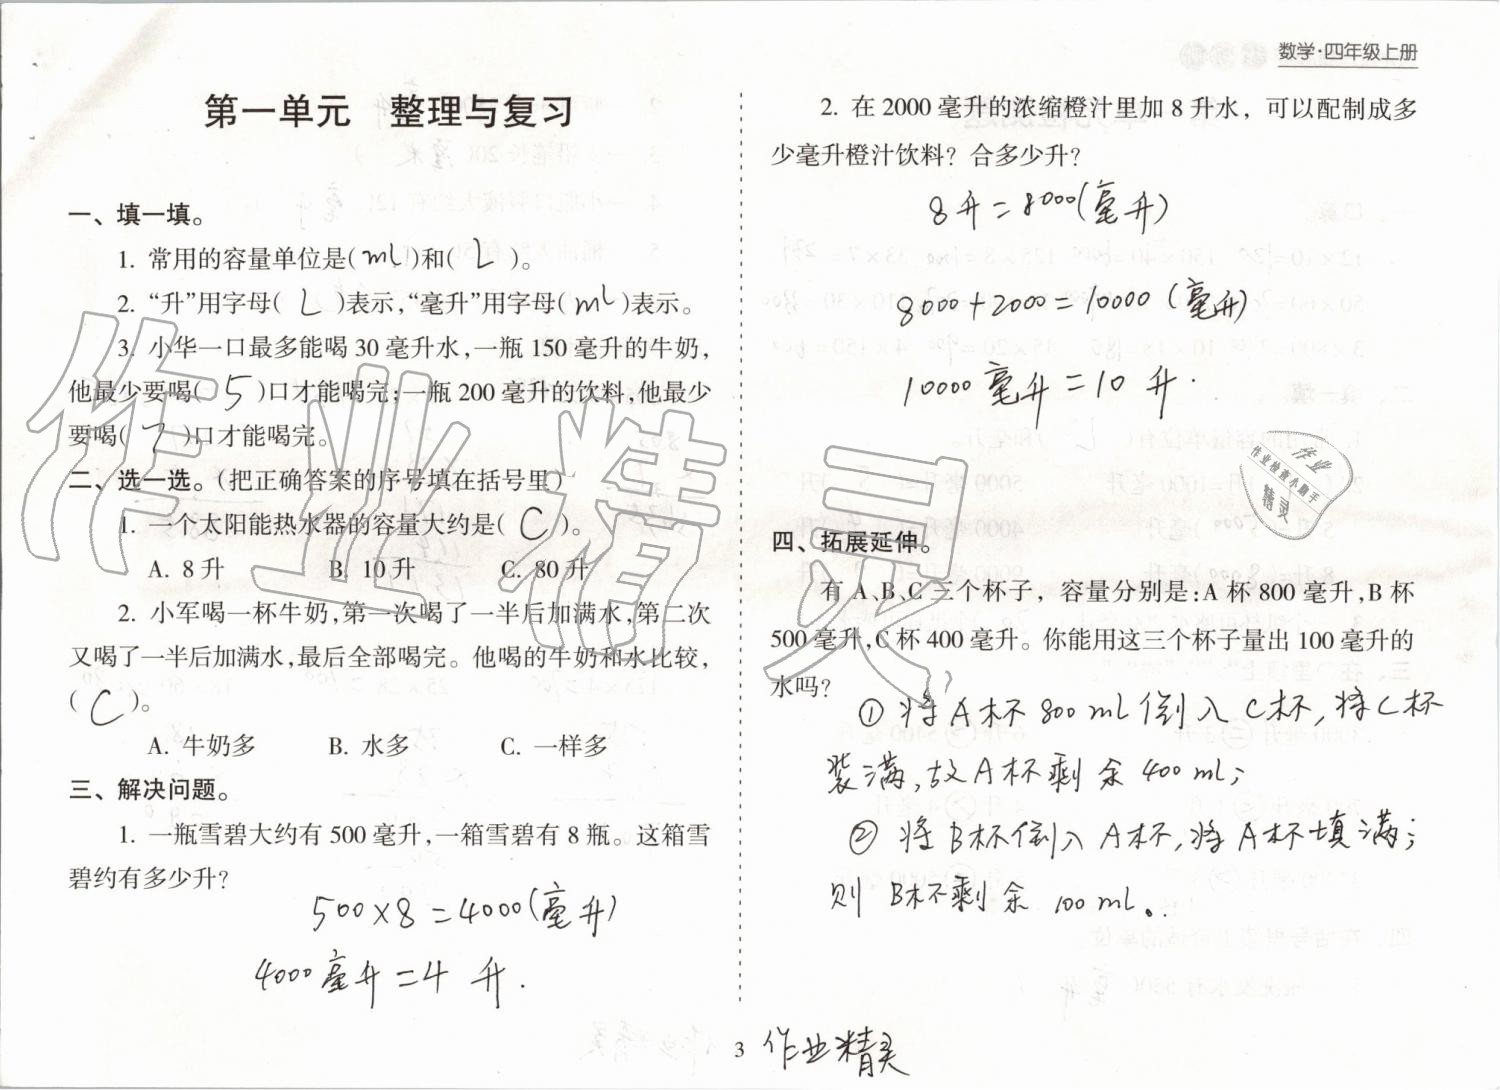 数学·四年级上册
第一单元 整理与复习
一、填一填。
1. 常用的容量单位是(mL)和(L)。
2. “升”用字母(L)表示,“毫升”用字母(mL)表示。
3. 小华一口最多能喝 30 毫升水,一瓶 150 毫升的牛奶,
他最少要喝(5)口才能喝完;一瓶 200 毫升的饮料,他最少
要喝(7)口才能喝完。
二、选一选。(把正确答案的序号填在括号里)
1. 一个太阳能热水器的容量大约是(C)。
A. 8 升 B. 10 升 C. 80 升
2. 小军喝一杯牛奶,第一次喝了一半后加满水,第二次
又喝了一半后加满水,最后全部喝完。他喝的牛奶和水比较,
(C)。
A. 牛奶多 B. 水多 C. 一样多
三、解决问题。
1. 一瓶雪碧大约有 500 毫升,一箱雪碧有 8 瓶。这箱雪
碧约有多少升?
500×8=4000(毫升)
4000毫升=4 升.
2. 在 2000 毫升的浓缩橙汁里加 8 升水，可以配制成多
少毫升橙汁饮料？合多少升？
8升=8000(毫升)
8000+2000=10000(毫升)
10000毫升=10升.
四、拓展延伸。
有 A、B、C 三个杯子，容量分别是:A 杯 800 毫升,B 杯
500 毫升,C 杯 400 毫升。你能用这三个杯子量出 100 毫升的
水吗?
①将A杯800mL倒入C杯,将C杯
装满,故A杯剩余400mL;
②将B杯倒入A杯,将A杯填满;
则B杯剩余100mL。
3
作业精灵
作业精灵
作业
作业检查小助手
精灵